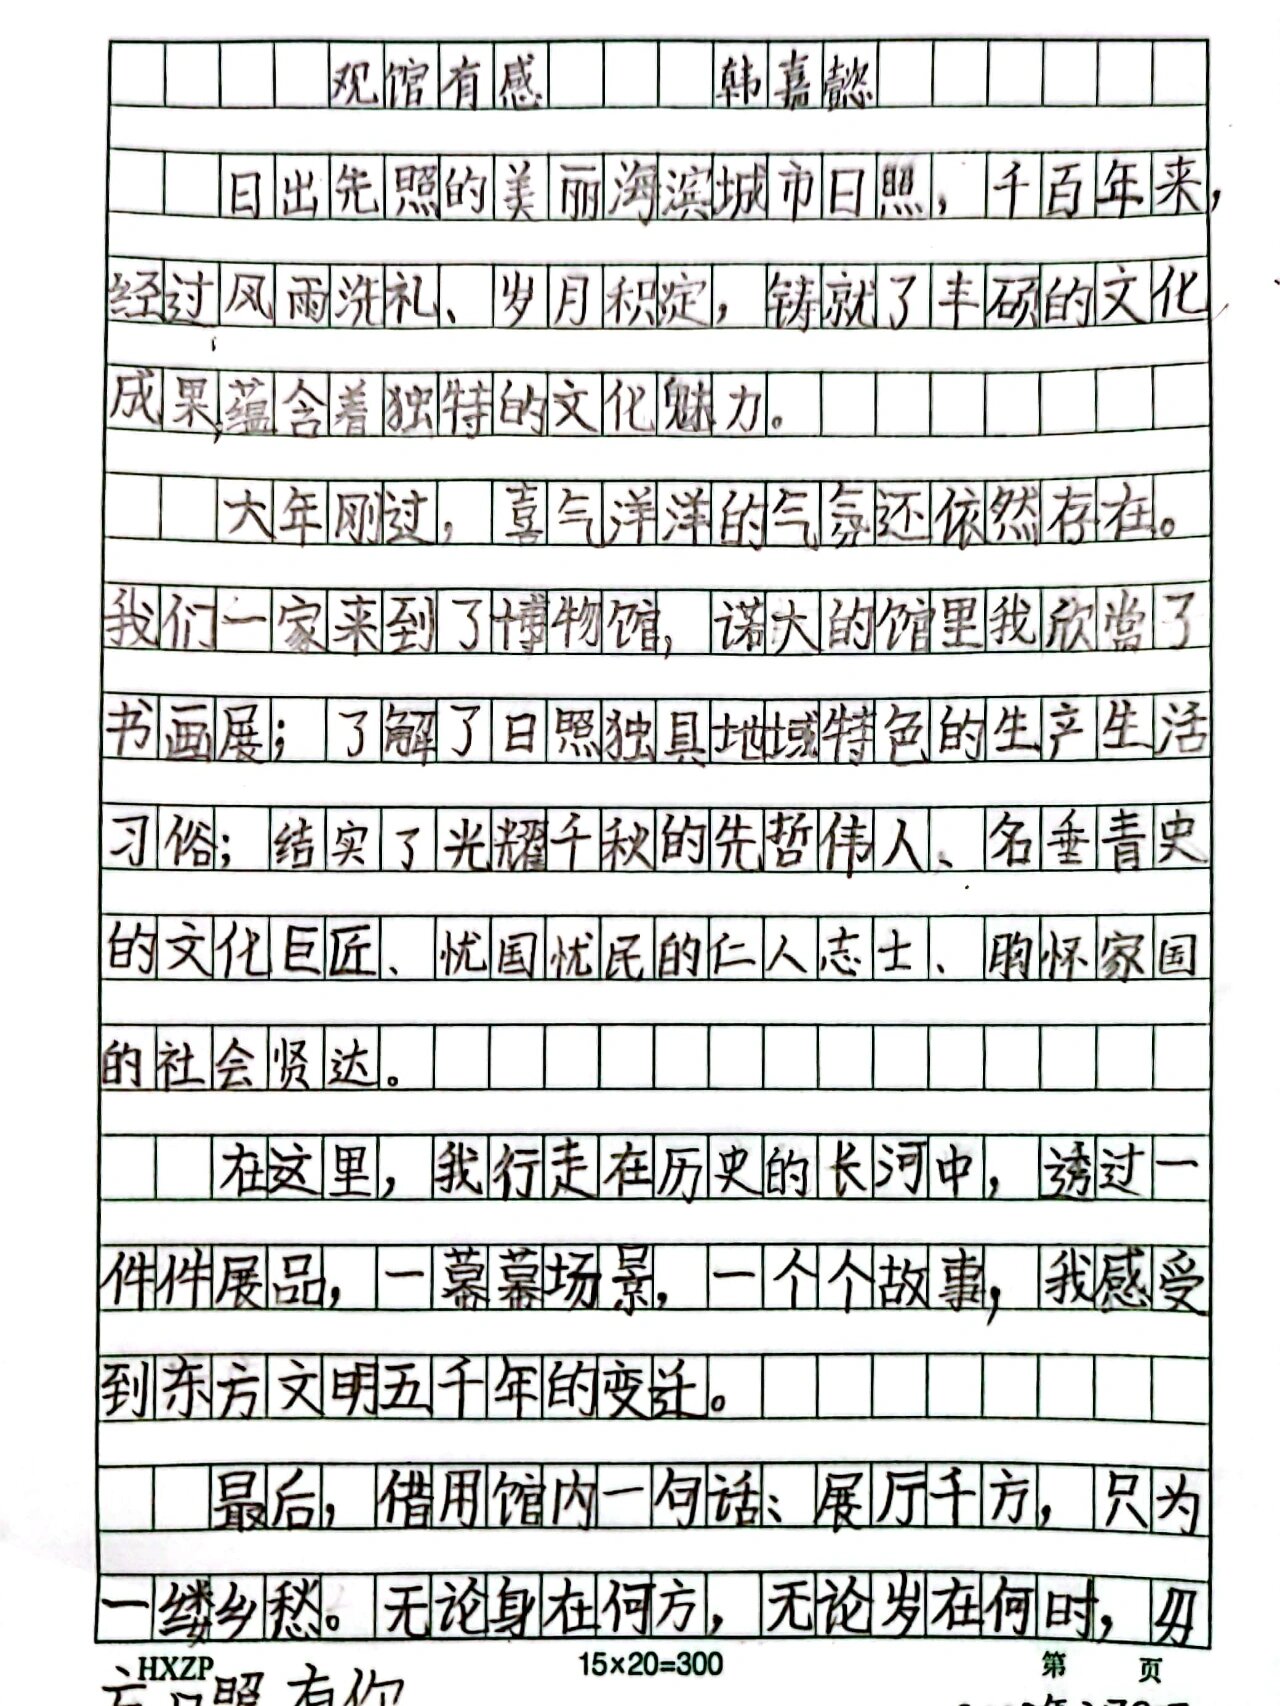 观馆有感 韩嘉懿
日出先照的美丽海滨城市日照，千百年来，
经过风雨洗礼、岁月积淀，铸就了丰硕的文化
成果，蕴含着独特的文化魅力。
大年刚过，喜气洋洋的气氛还依然存在。
我们一家来到了博物馆，诺大的馆里我欣赏了
书画展；了解了日照独具地域特色的生产生活
习俗；结实了光耀千秋的先哲伟人、名垂青史
的文化巨匠、忧国忧民的仁人志士、胸怀家国
的社会贤达。
在这里，我行走在历史的长河中，透过一
件件展品，一幕幕场景，一个个故事，我感受
到东方文明五千年的变迁。
最后，借用馆内一句话：展厅千方，只为
一缕乡愁。无论身在何方，无论岁在何时，毋
HXZP 15×20=300 第 页
忘日照有你